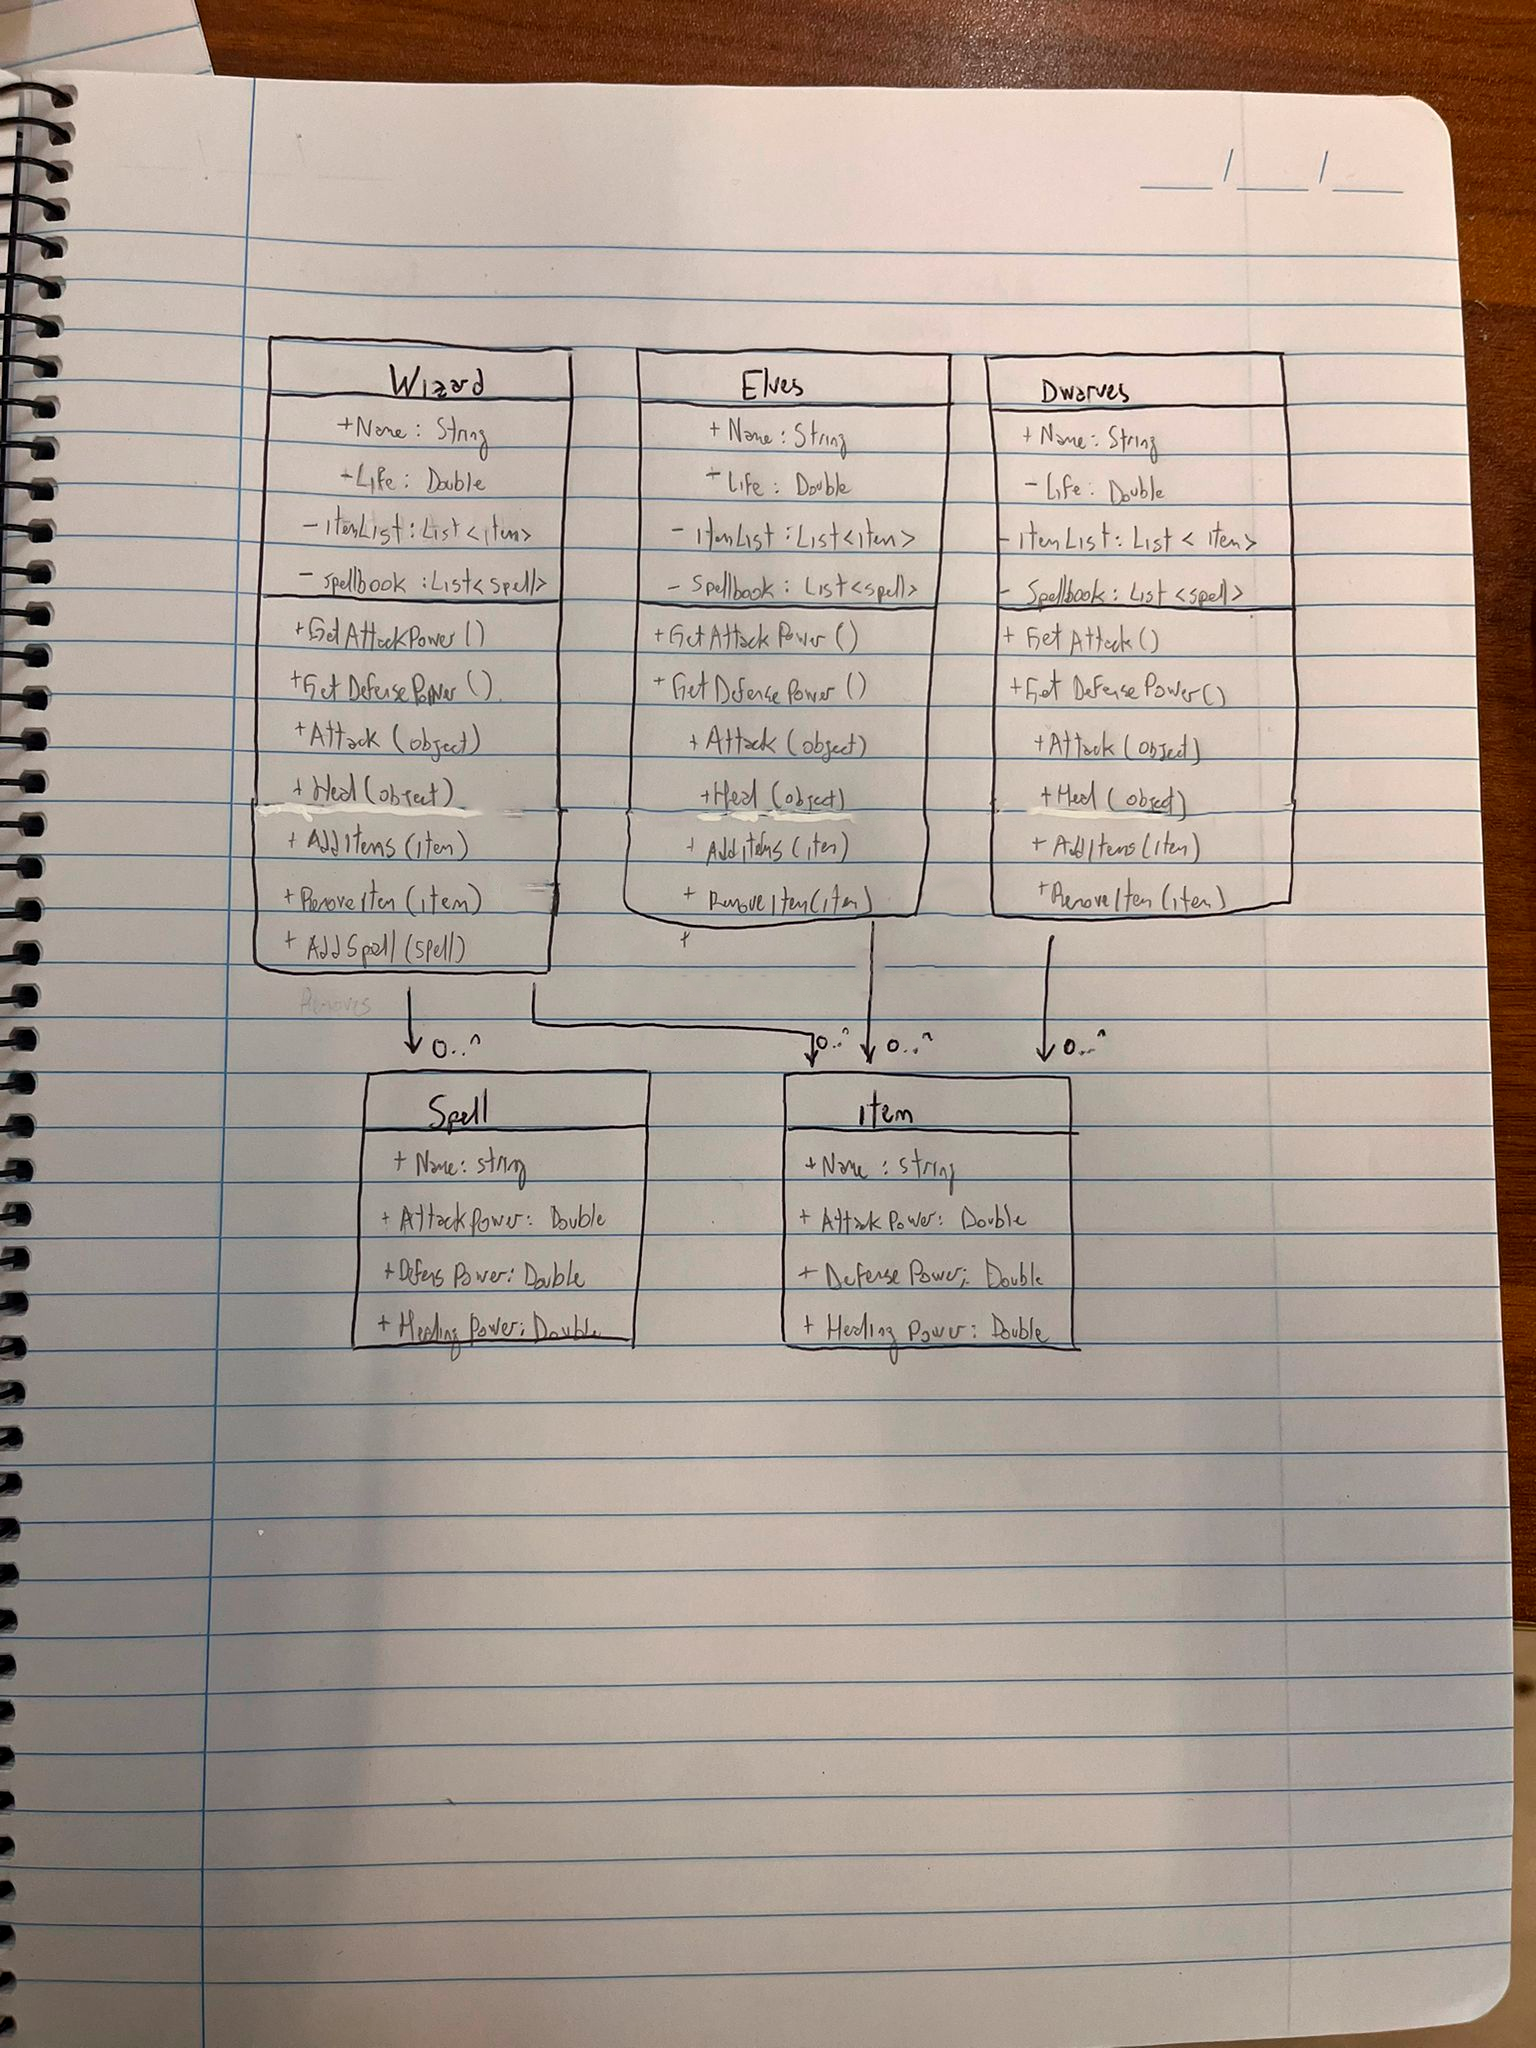 Wizard
+ Name : String
+ Life : Double
- itemList : List <item>
- Spellbook : List <spell>
+ GetAttackPower ()
+ Get DefensePower ()
+ Attack (object)
+ Heal (object)
+ AddItems (item)
+ RemoveItem (item)
+ AddSpell (spell)
Removes
Elves
+ Name : String
+ Life : Double
- itemList : List <item>
- Spellbook : List <spell>
+ GetAttackPower ()
+ GetDefensePower ()
+ Attack (object)
+ Heal (object)
+ AddItems (item)
+ RemoveItem (item)
+
Dwarves
+ Name : String
- Life : Double
- itemList : List < item>
- Spellbook : List <spell>
+ GetAttack ()
+ Get DefensePower ()
+ Attack (object)
+ Heal (object)
+ AddItems (item)
+ RemoveItem (item)
0..^
0..^
0..^
0..^
Spell
+ Name : string
+ AttackPower : Double
+ Defens Power : Double
+ Healing Power : Double
item
+ Name : string
+ AttackPower : Double
+ Defense Power : Double
+ Healing Power : Double